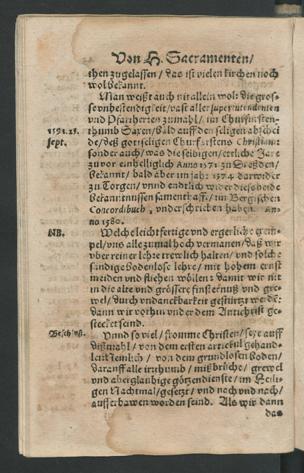 Von H. Sacramenten/
chen zugelassen / das ist vielen kirchen noch
wol bekannt.
Man weißt auch nit allein wol die gros-
se unbestendigkeit/ vast aller superintendenten
und Pfarherren zumahl/ im Churfursten-
1591. 25. thumb Saxen/ bald auff den seligen abschei
Sept. de/ deß gottseligen Churfürstens Christiani:
sonder auch/ das dieselbigen/ ettliche Jare
zuvor einhelliglich Anno 1571 zu Dreßden/
Bekannt/ bald aber im jahr 1574 darwider
zu Torgen/ unnd endtlich wider die beide
Bekanntnussen samenthafft/ im Bergischen
Concordibuch, underschrieben haben An-
no 1580.
NB. Welch leichtfertige und ergerliche exem-
pel/ uns alle zumal hoch vermanen/ daß wir
ob reiner lehre trewlich halten/ und solche
sündige Bodenlose lehre/ mit hohem ernst
meiden und fliehen wöllen: damit wir nit
in die alte und grössere finsternuß und gre-
wel/ durch undanckbarkeit gestürtzt werdē:
dann wir vorhin under dem Antichrist ge-
stecket seind.
Beschluß. Unnd so viel/ fromme Christen/ seye auff
dißmahl / von dem ersten artickul gehand-
let: Nemlich / von dem grundlosen Boden/
darauff alle irrthumb / mißbrüche/ grewel
und aberglaubige götzendienste/ im Heili-
gen Nachtmal/ gesetzt / und nach und nach/
aufferbawen worden seind. Als wir dann
das